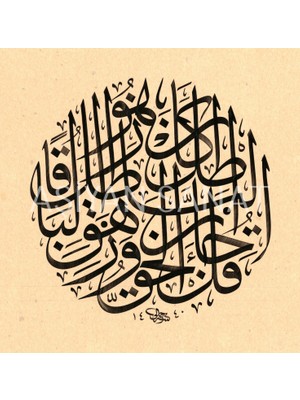 قل جاء الحق وزهق الباطل إن الباطل كان زهوقا
SANAT
١٤٤٠